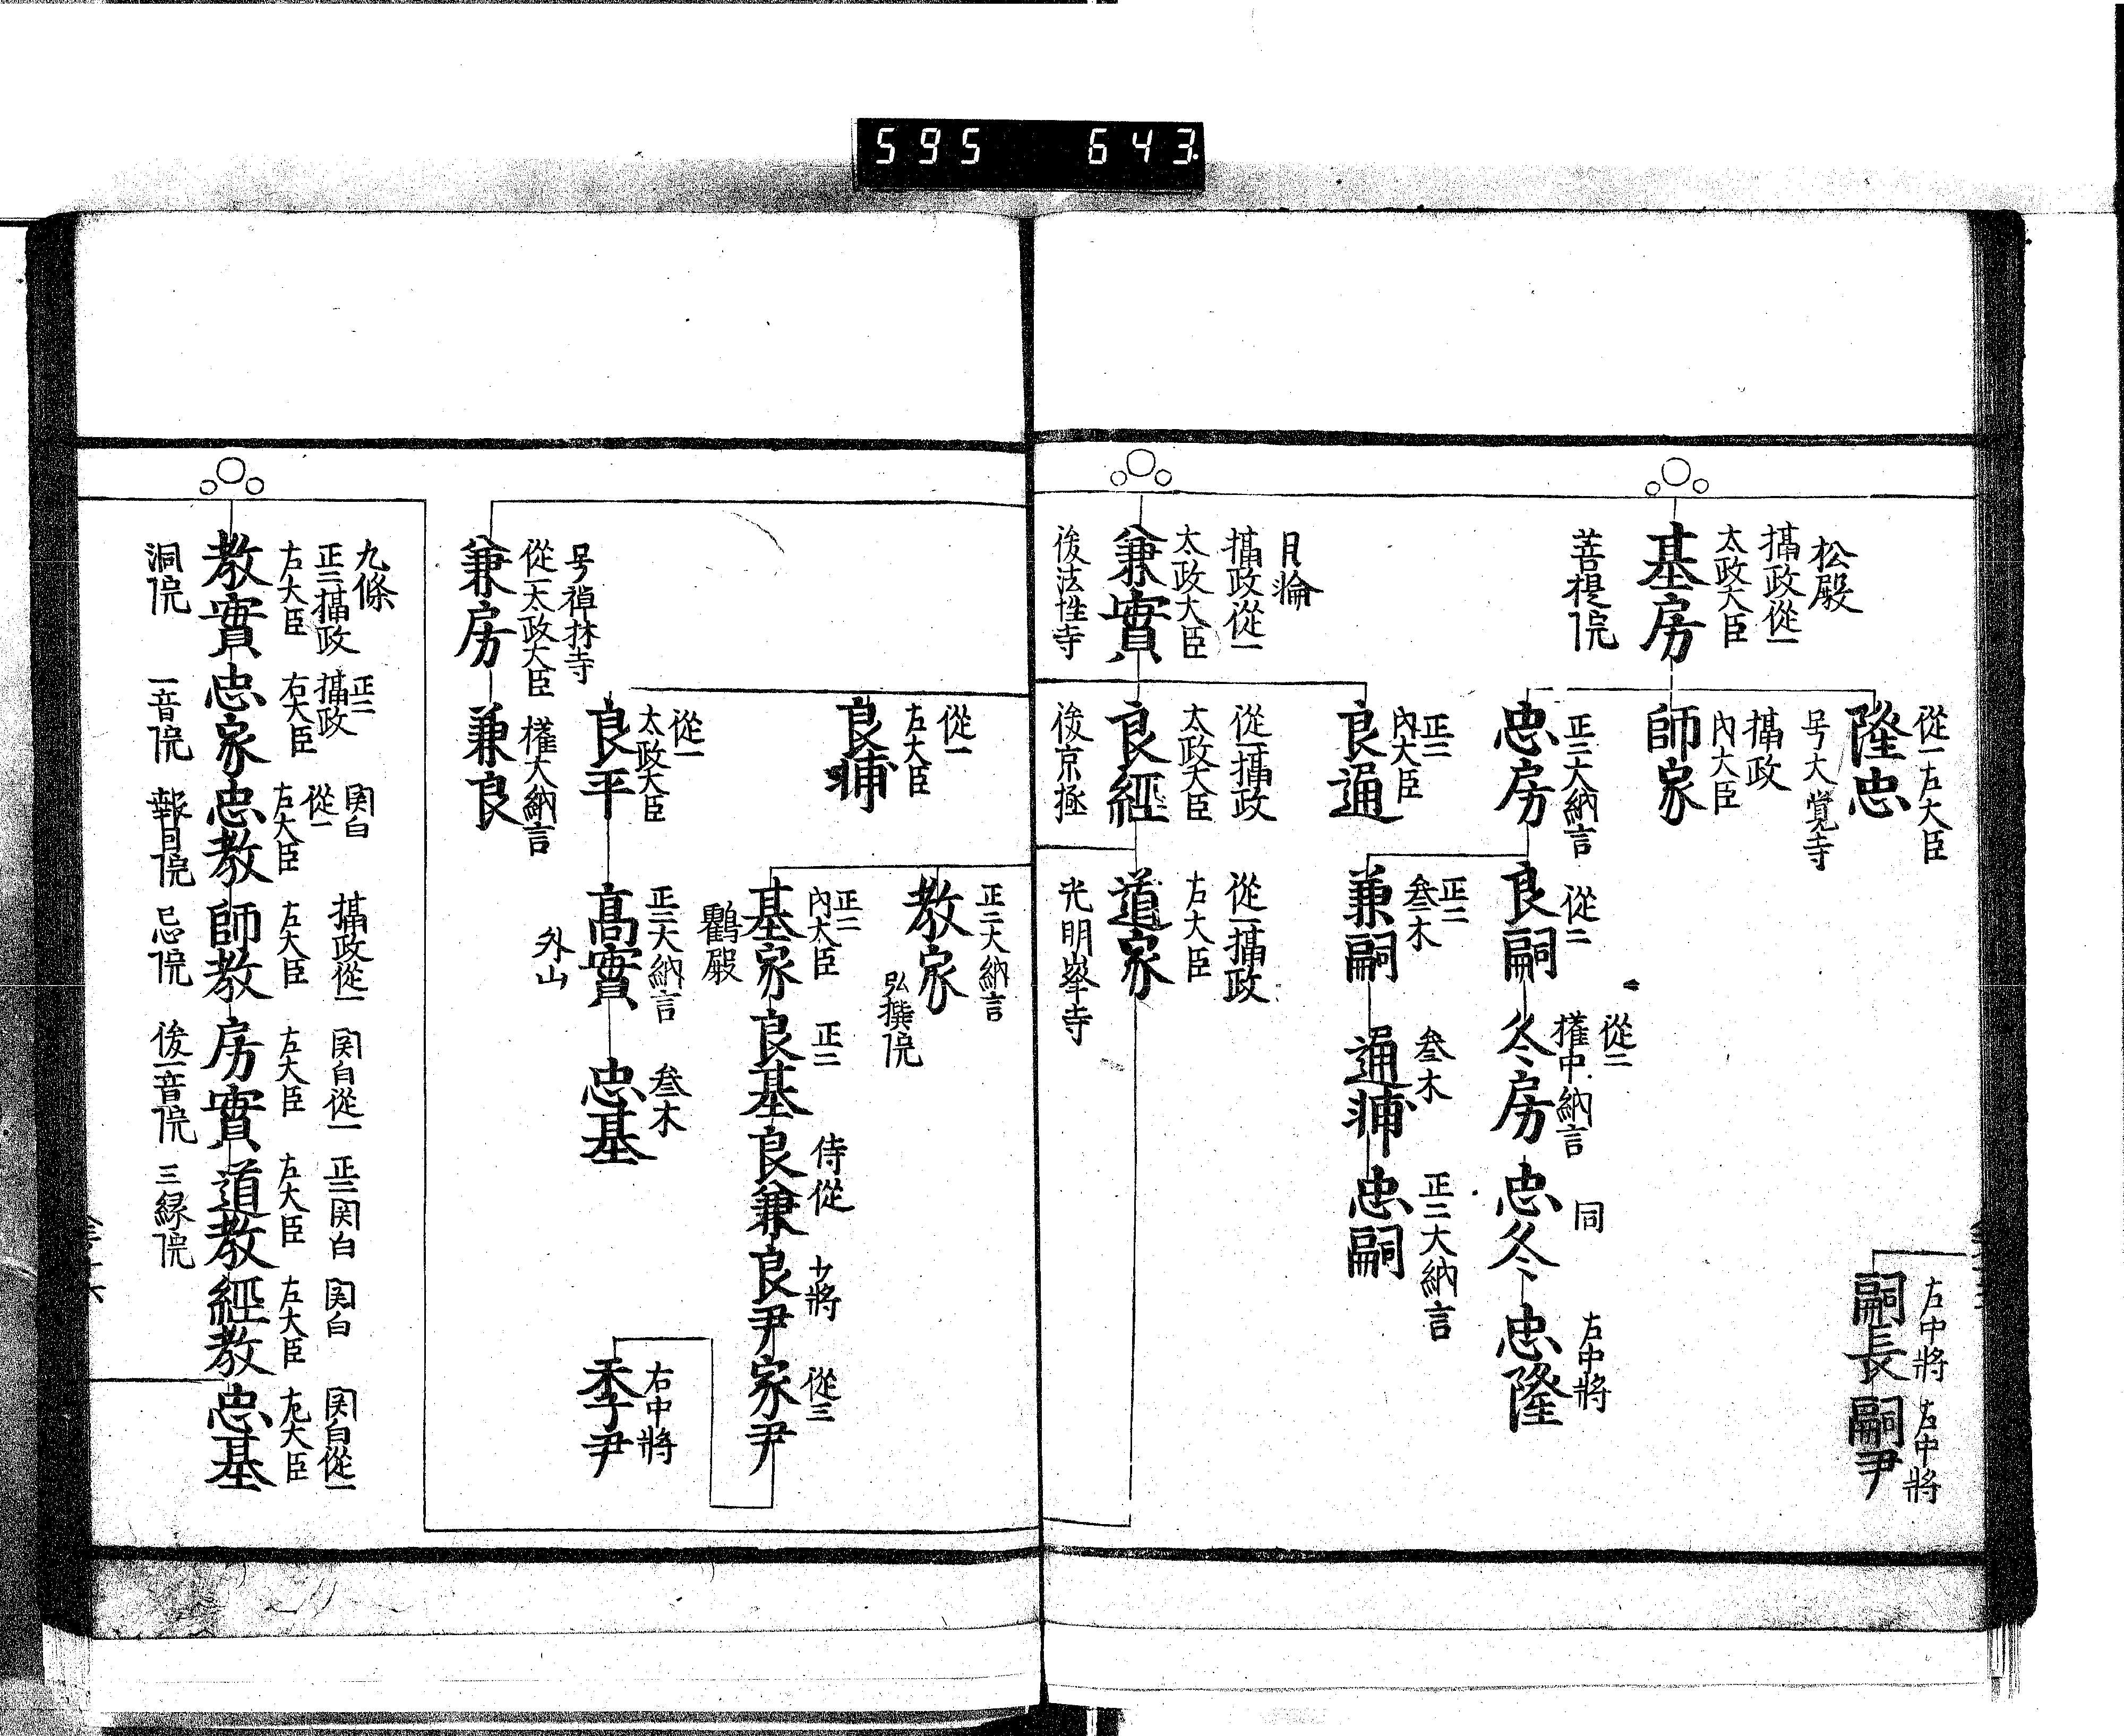 595 643
左中將
嗣長
左中將
嗣尹
從一左大臣
隆忠
号大覚寺
松殿
攝政從一
太政大臣
基房
菩提院
攝政
內大臣
師家
正二大納言
忠房
從二
良嗣
從二
權中納言
冬房
同
忠冬
左中將
忠隆
正二
叅木
兼嗣
叅木
通輔
正二大納言
忠嗣
正二
內大臣
良通
月輪
攝政從一
太政大臣
兼實
後法性寺
從一攝政
太政大臣
良經
後京極
從一攝政
左大臣
道家
光明峯寺
正二大納言
教家
弘撰院
從一
左大臣
良輔
正二
內大臣
基家
鸖殿
正二
良基
侍從
良兼
少將
良尹
從三
家尹
右中將
季尹
從一
太政大臣
良平
正二大納言
高實
外山
叅木
忠基
号禅林寺
從一太政大臣
兼房
權大納言
兼良
九條
正二攝政
左大臣
教實
洞院
正二
攝政
右大臣
忠家
一音院
関白
從一
左大臣
忠教
報恩院
攝政從一
左大臣
師教
忌院
関白從一
左大臣
房實
後一音院
正二関白
左大臣
道教
三縁院
関白
左大臣
經教
関白從一
左大臣
忠基